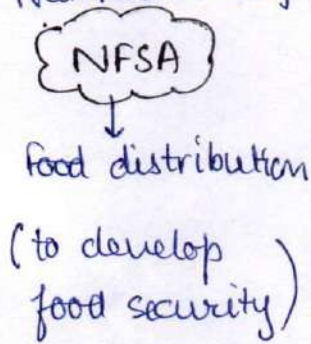 NFSA
Food distribution
(to develop
food security)